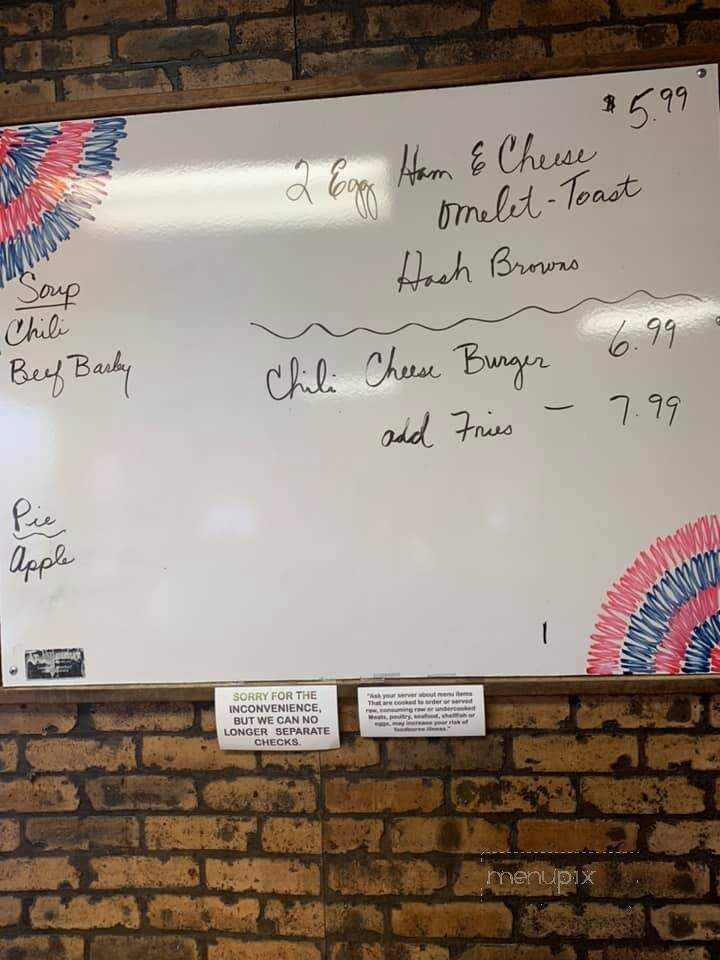 $5.99
2 Egg Ham & Cheese
Omelet - Toast
Hash Browns
Soup
Chili
Beef Barley
Chili Cheese Burger 6.99
add Fries - 7.99
Pie
Apple
SORRY FOR THE
INCONVENIENCE,
BUT WE CAN NO
LONGER SEPARATE
CHECKS.
"Ask your server about menu items
That are cooked to order or served
raw, consuming raw or undercooked
Meats, poultry, seafood, shellfish or
eggs, may increase your risk of
foodborne illness."
menupix